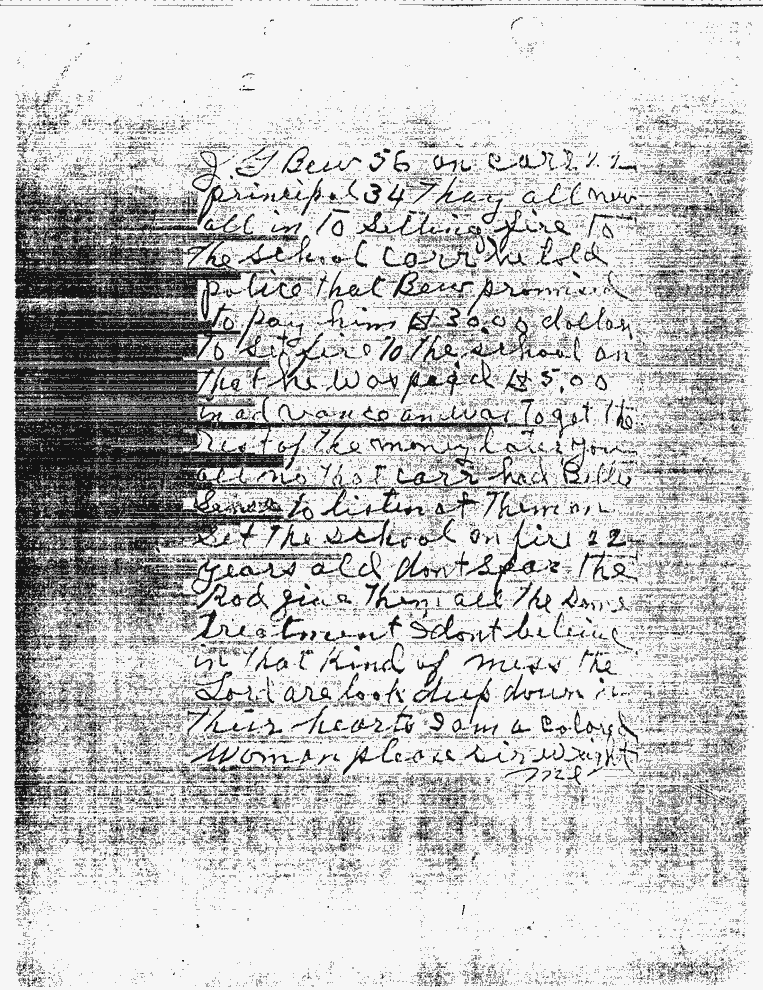 J. T Bew 56 an carr 22
principal 34 Thay all new
all in To Setting fire To
The school Carr he told
police that Bew promised
to pay him $30.00 dollar
To Set fire To The school an
That he Was payed $5.00
in advance an was To get the
rest of The money later you
all no That carr had Bille
Sense to listen at Them an
Set The school on fire 22
years old dont Spar The
Rod give Them all The Same
Treatment I dont believe
in That Kind of mess the
Lord are look deep down in
Their hearts I am a colord
Woman please sir Wright
me